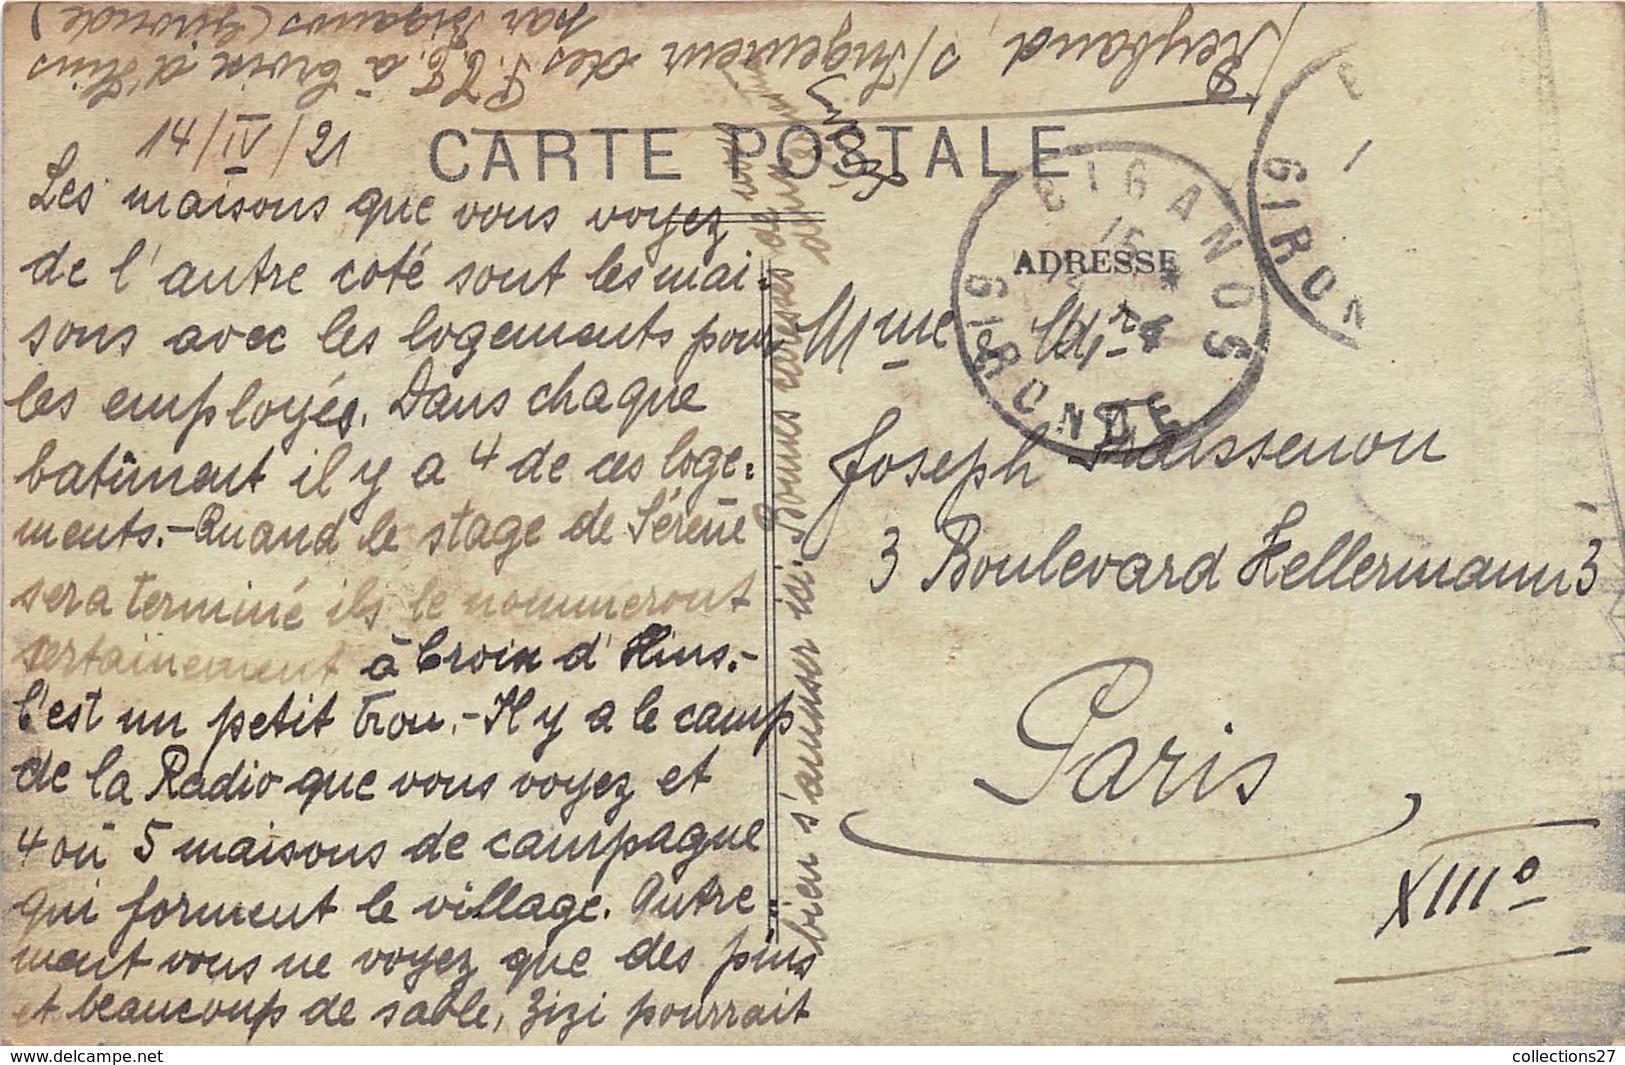 Reybaud, s/Ingenieur des P.T.T. à Croix d'Hins
par Biganos (Gironde)
14/IV/21
CARTE POSTALE
ADRESSE
Les maisons que vous voyez
de l'autre coté sont les mai=
sons avec les logements pour
les employés. Dans chaque
batiment il y a 4 de ces loge=
ments.- Quand le stage de
sera terminé ils le nommeront
sertainement à Croix d'Hins.-
C'est un petit trou.- Il y a le camp
de la Radio que vous voyez et
4 ou 5 maisons de campagne
qui forment le village. Autre=
ment vous ne voyez que des pins
et beaucoup de sable, Zizi pourrait
bien s'ammuser ici. Bonnes caresses
Mme
Joseph
3 Boulevard Kellermann 3
Paris
XIIIe
BIGANOS
GIRONDE
15
GIRON
collections27